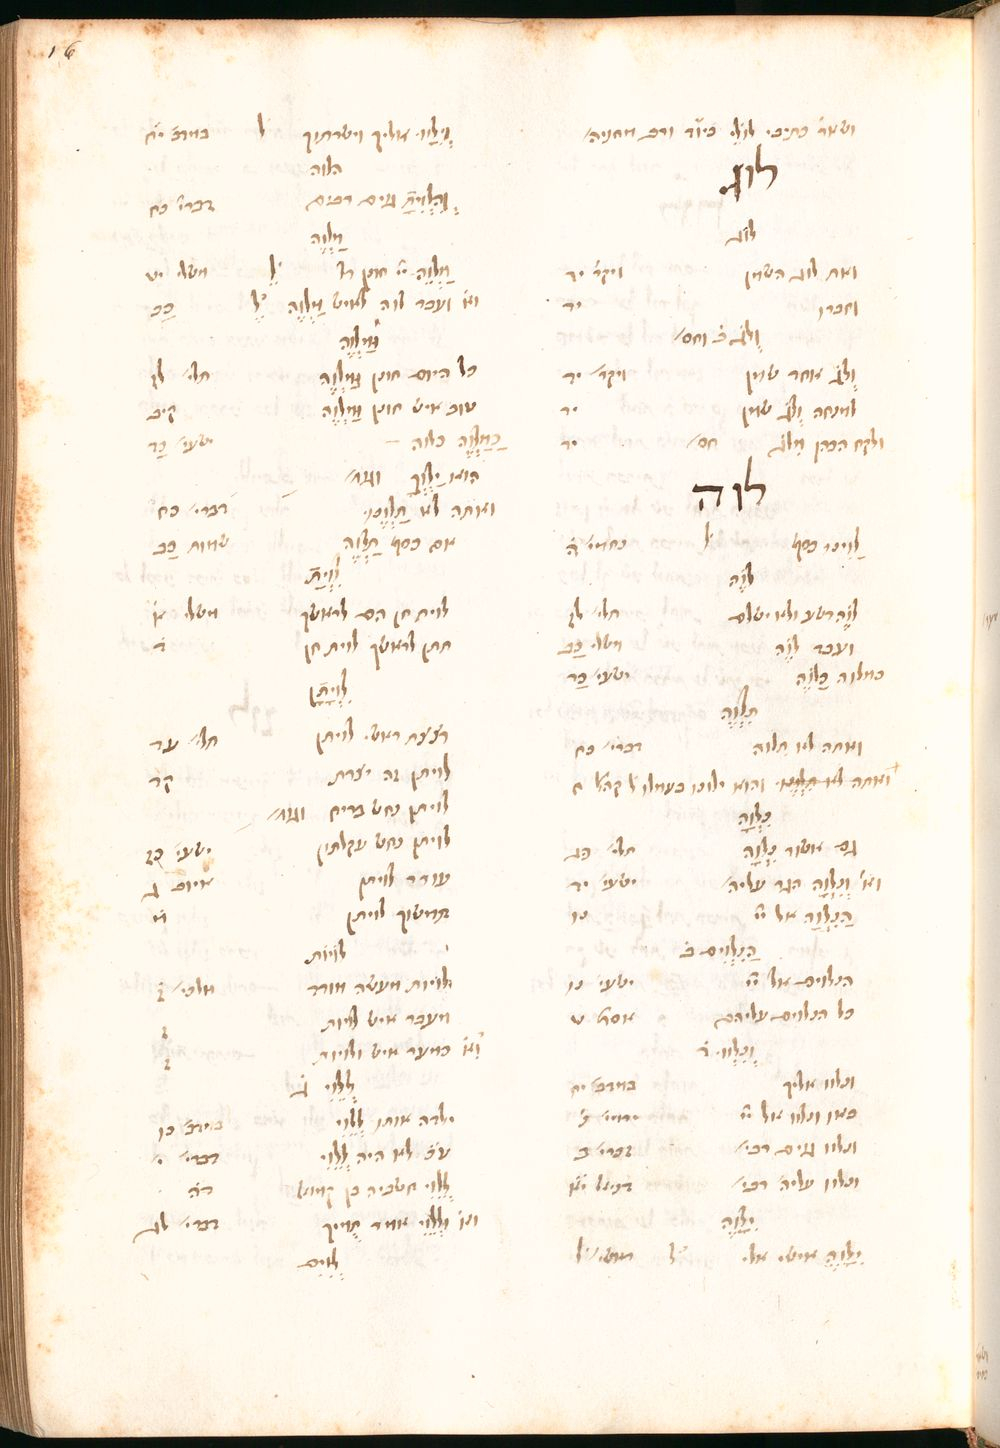 16
ושאר כתיבי לולי ביוד ורב מחניה
לוג
לוג
ואת לוג השמן ויקר׳ יד
וחברו יד
ולוג ב׳ וחס׳
ולוג אחד שמן ויקר׳ יד
למנחה ולוג שמן יד
ולקח הכהן מלוג חס׳ יד
לוה
לוינו כסף ל׳ נחמי׳ ה
לוה
לוה רשע ולא ישלם תלי׳ לז
ועבד לוה משלי כב
כמלוה כלוה ישעי׳ כד
תלוה
ואתה לא תלוה דברי׳ כח
והוא ילונו בעמלו ל׳ קהל׳ ח
נלוה
גם אשור נלוה תלי׳ פג
וא׳ ונלוה הגר עליה׳ ישעי׳ יד
הנלוה אל יי׳ נו
הנלוים ב׳
הנלוים אל יי׳ ישעי׳ נו
כל הנלוים עליהם אסת׳ ט
ונלוו ד׳
ונלוו אליך במדב׳ יח
באו ונלוו אל יי׳ ירמי׳ נ׳
ונלוו גוים רבי׳ זכרי׳ ב
ונלוו עליה׳ רבי׳ דניאל יא
ילוה
ילוה אישי אלי ל׳ ראשי׳ ל׳
וילוו אליך וישרתוך ל׳ במדב׳ יח
הלוה
והלוית גוים רבים דברי׳ כח
מלוה
מלוה יי׳ חונן דל ל׳ משלי יט
וא׳ ועבד לוה לאיש מלוה ל׳ כב
ומלוה
כל היום חונן ומלוה תלי׳ לז
טוב איש חונן ומלוה קיב
כמלוה כלוה ישעי׳ כד
הוא ילוך וגמ׳
ואתה לא תלונו דברי׳ כח
אם כסף תלוה שמות כב
לוית
לוית חן הם לראשך משלי א
תתן לראשך לוית חן ד
לויתן
רצצת ראשי לויתן תלי׳ עד
לויתן זה יצרת קד
לויתן נחש בריח וגמ׳
לויתן נחש עקלתון ישעי׳ כז
עורר לויתן איוב ג
תמשוך לויתן מ
לויות
לויות מעשה מורד מלכי׳ ז
מעבר איש לויות ז
וא׳ כמער איש ולויות ז
ללוי ג׳
ילדה אותו ללוי במדב׳ כו
ע״כ לא היה ללוי דברי׳ י׳
ללוי חשביה בן קמואל דה
וא׳ וללוי אמר תמיך דברי׳ לג
לוים